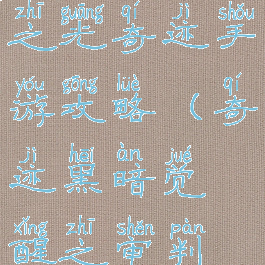 zhī guāng qí jì shǒu
之光奇迹手
yóu gōng lüè qí
游攻略（奇
jì hēi àn jué
迹黑暗觉
xǐng zhī shěn pàn
醒之审判